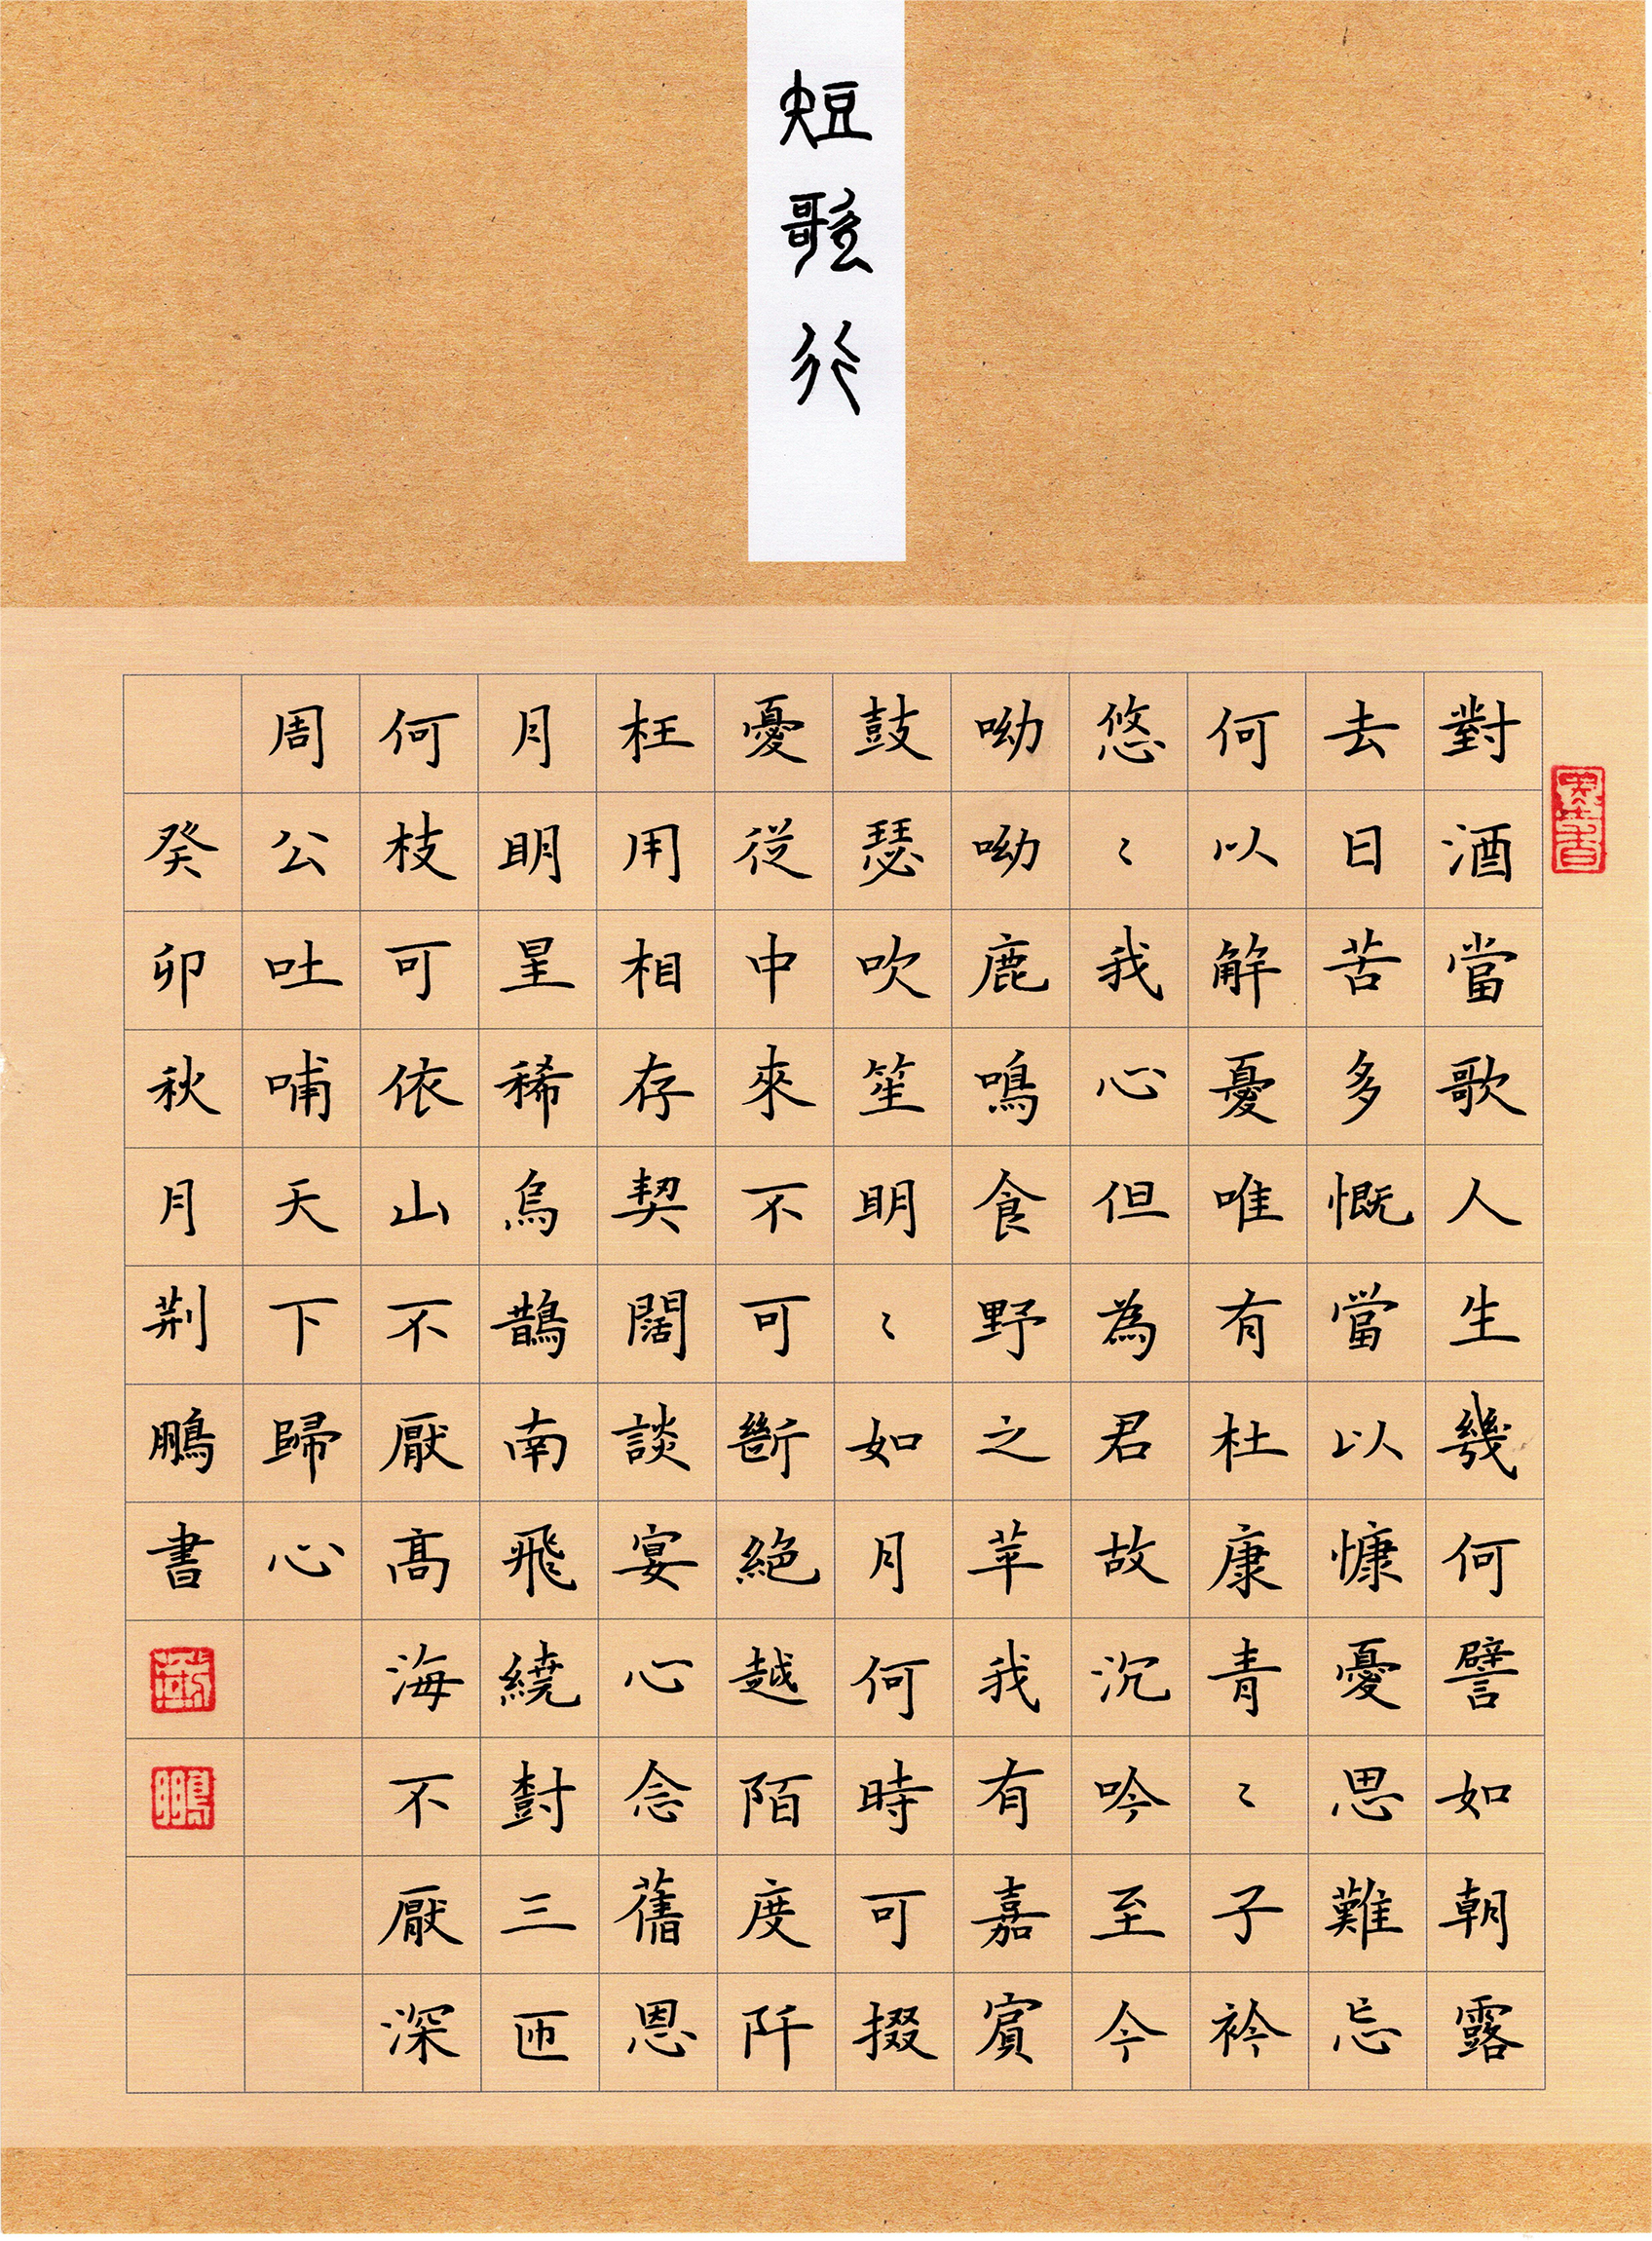 短歌行
墨香
對酒當歌人生幾何譬如朝露
去日苦多慨當以慷憂思難忘
何以解憂唯有杜康青〻子衿
悠〻我心但為君故沉吟至今
呦呦鹿鳴食野之苹我有嘉賓
鼓瑟吹笙明〻如月何時可掇
憂從中來不可斷絕越陌度阡
枉用相存契闊談宴心念舊恩
月明星稀烏鵲南飛繞樹三匝
何枝可依山不厭高海不厭深
周公吐哺天下歸心
癸卯秋月荆鵬書
荆
鵬